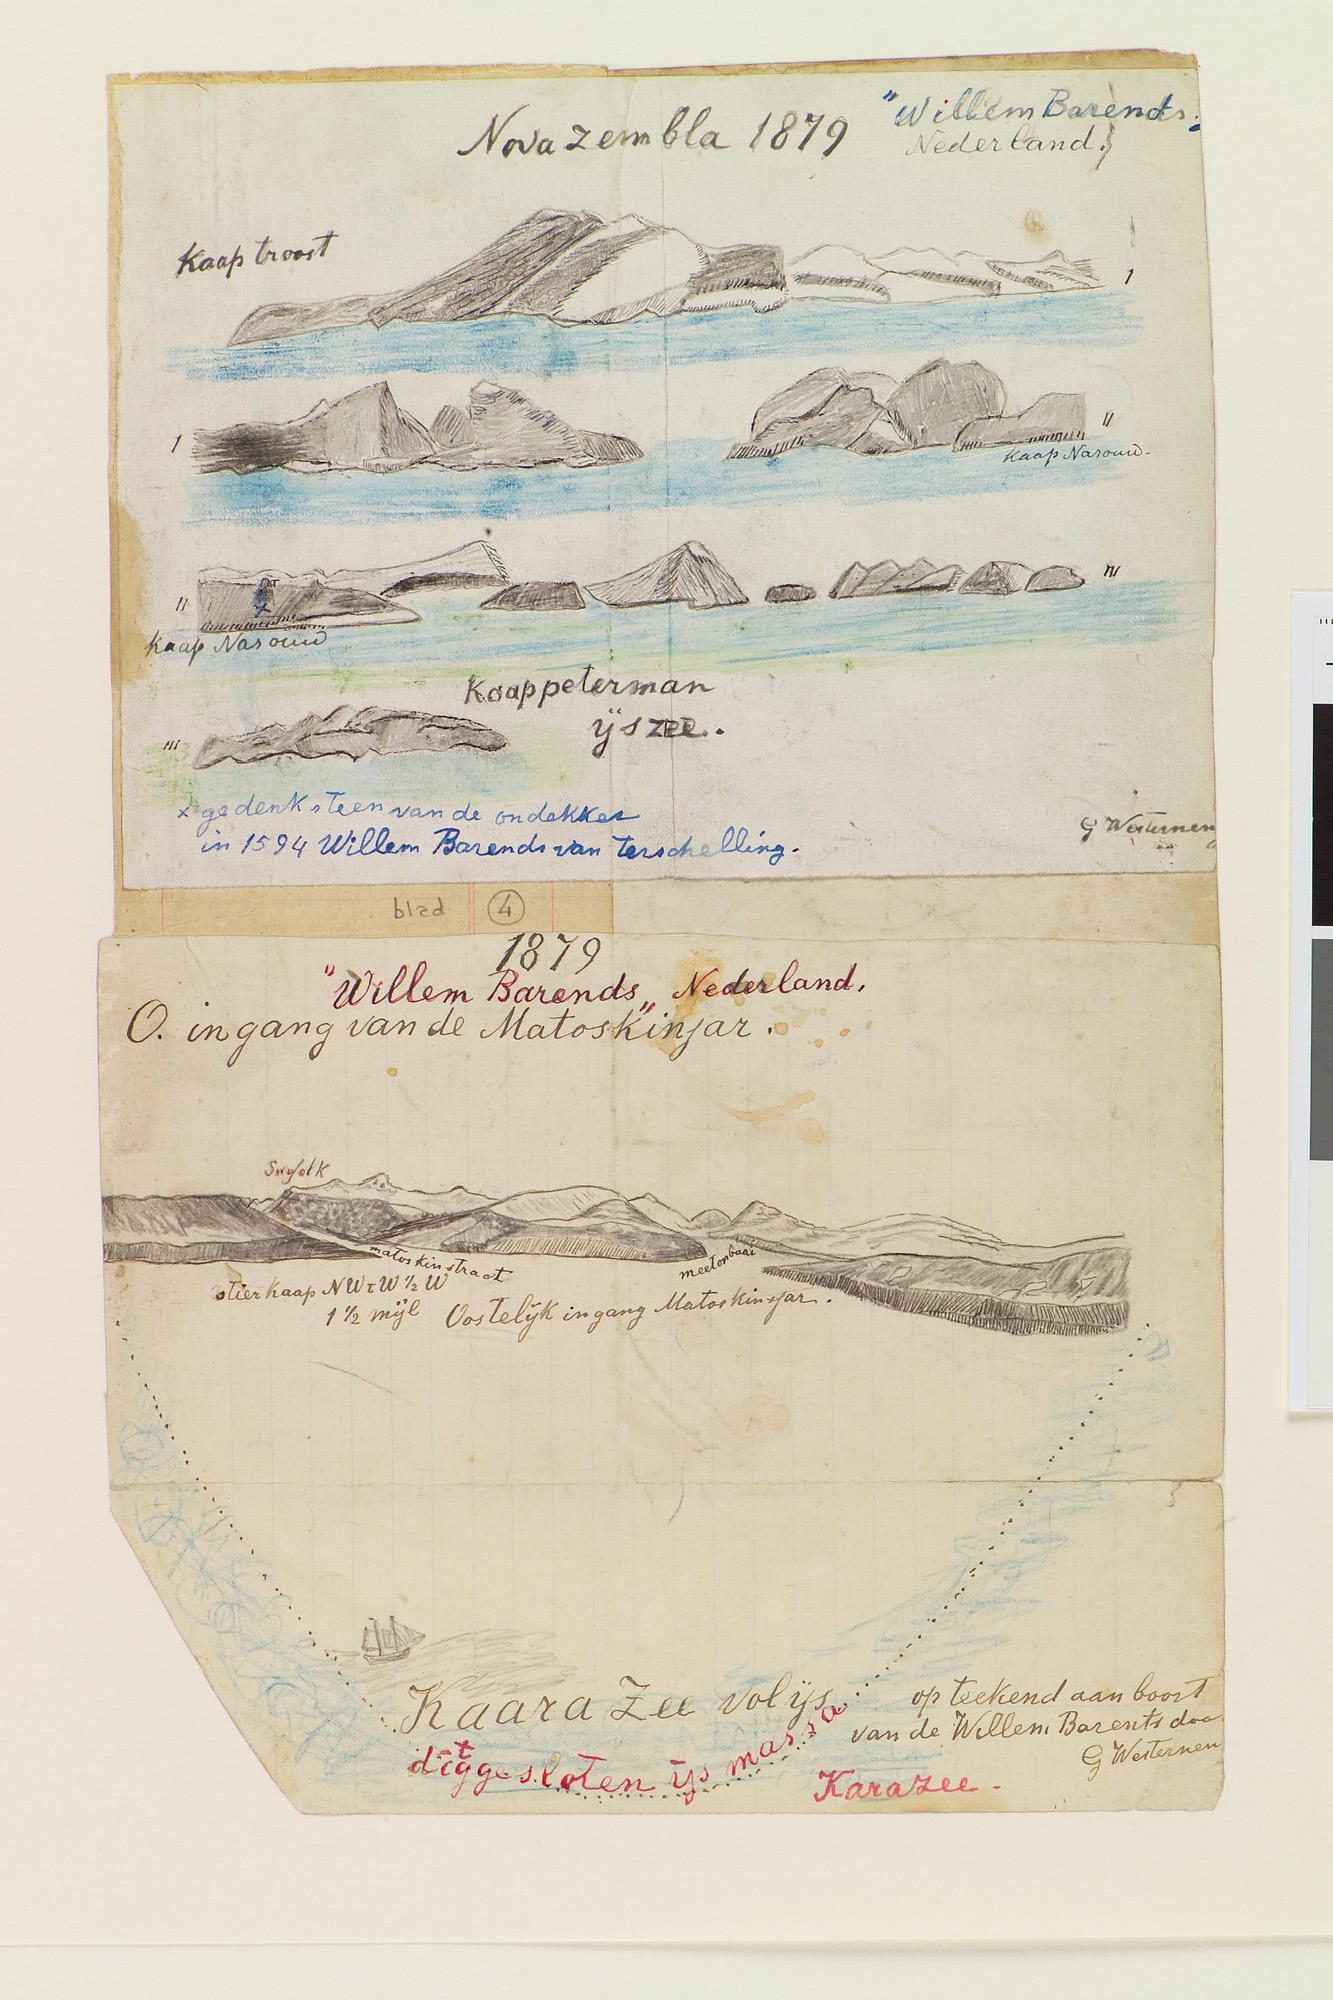 Nova zembla 1879
"Willem Barends„
Nederland.
Kaap troost
1
1
11
Kaap Narouw.
11
111
Kaap Narouw
Kaap peterman
ÿszee.
111
x gedenksteen van de ondekker
in 1594 Willem Barends van terschelling.
G Westernen
blad 4
1879
"Willem Barends„ Nederland.
O. ingang van de Matoskinsar.
matoskinstraat
meetonbaai
stierkaap NWtW ½ W
1 ½ mÿl
Oostelÿk ingang Matoskinsjar.
Kaara Zee vol ÿs
digtgesloten ÿs massa
Karazee.
op teekend aan boort
van de Willem Barents doo
G Westernen